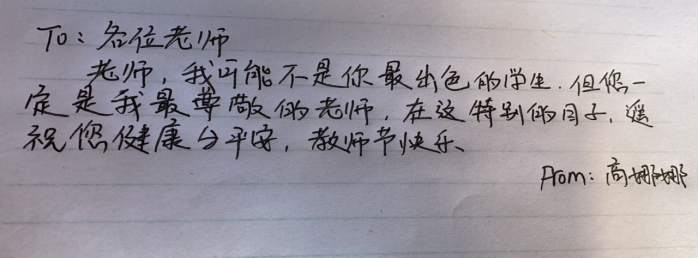 To：各位老师
老师，我可能不是你最出色的学生．但您一
定是我最尊敬的老师，在这特别的日子，遥
祝您健康与平安，教师节快乐、
From：高娜娜